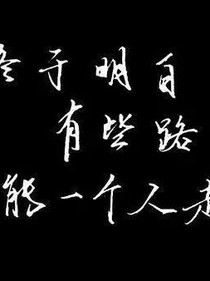 终于明白
有些路
能一个人走